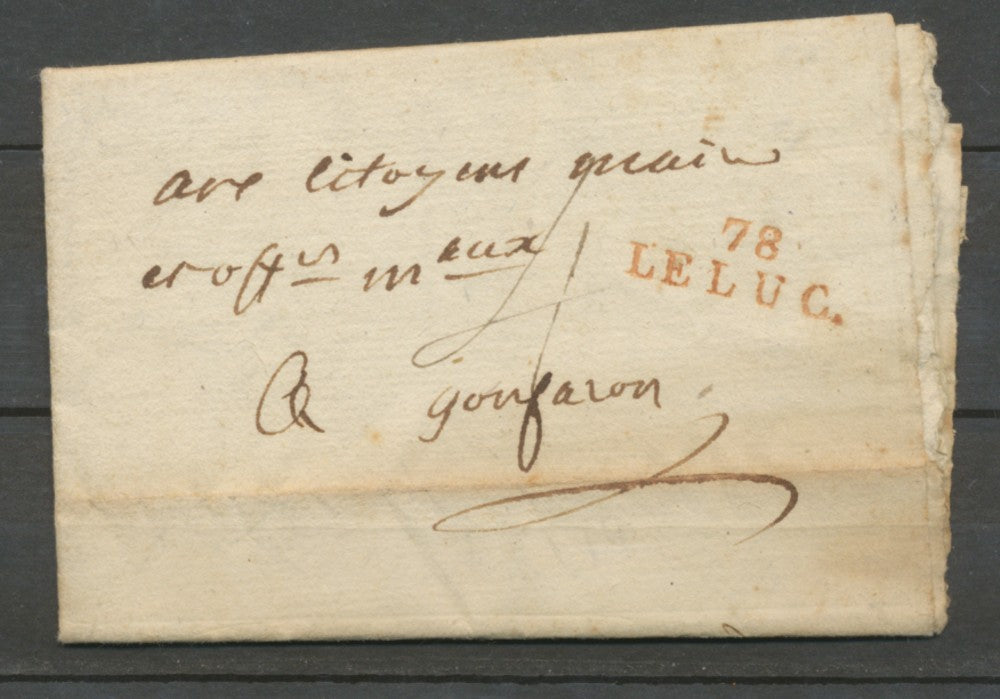 aux Citoyens maire
et offrs m aux
78
LELUC.
A gonfaron